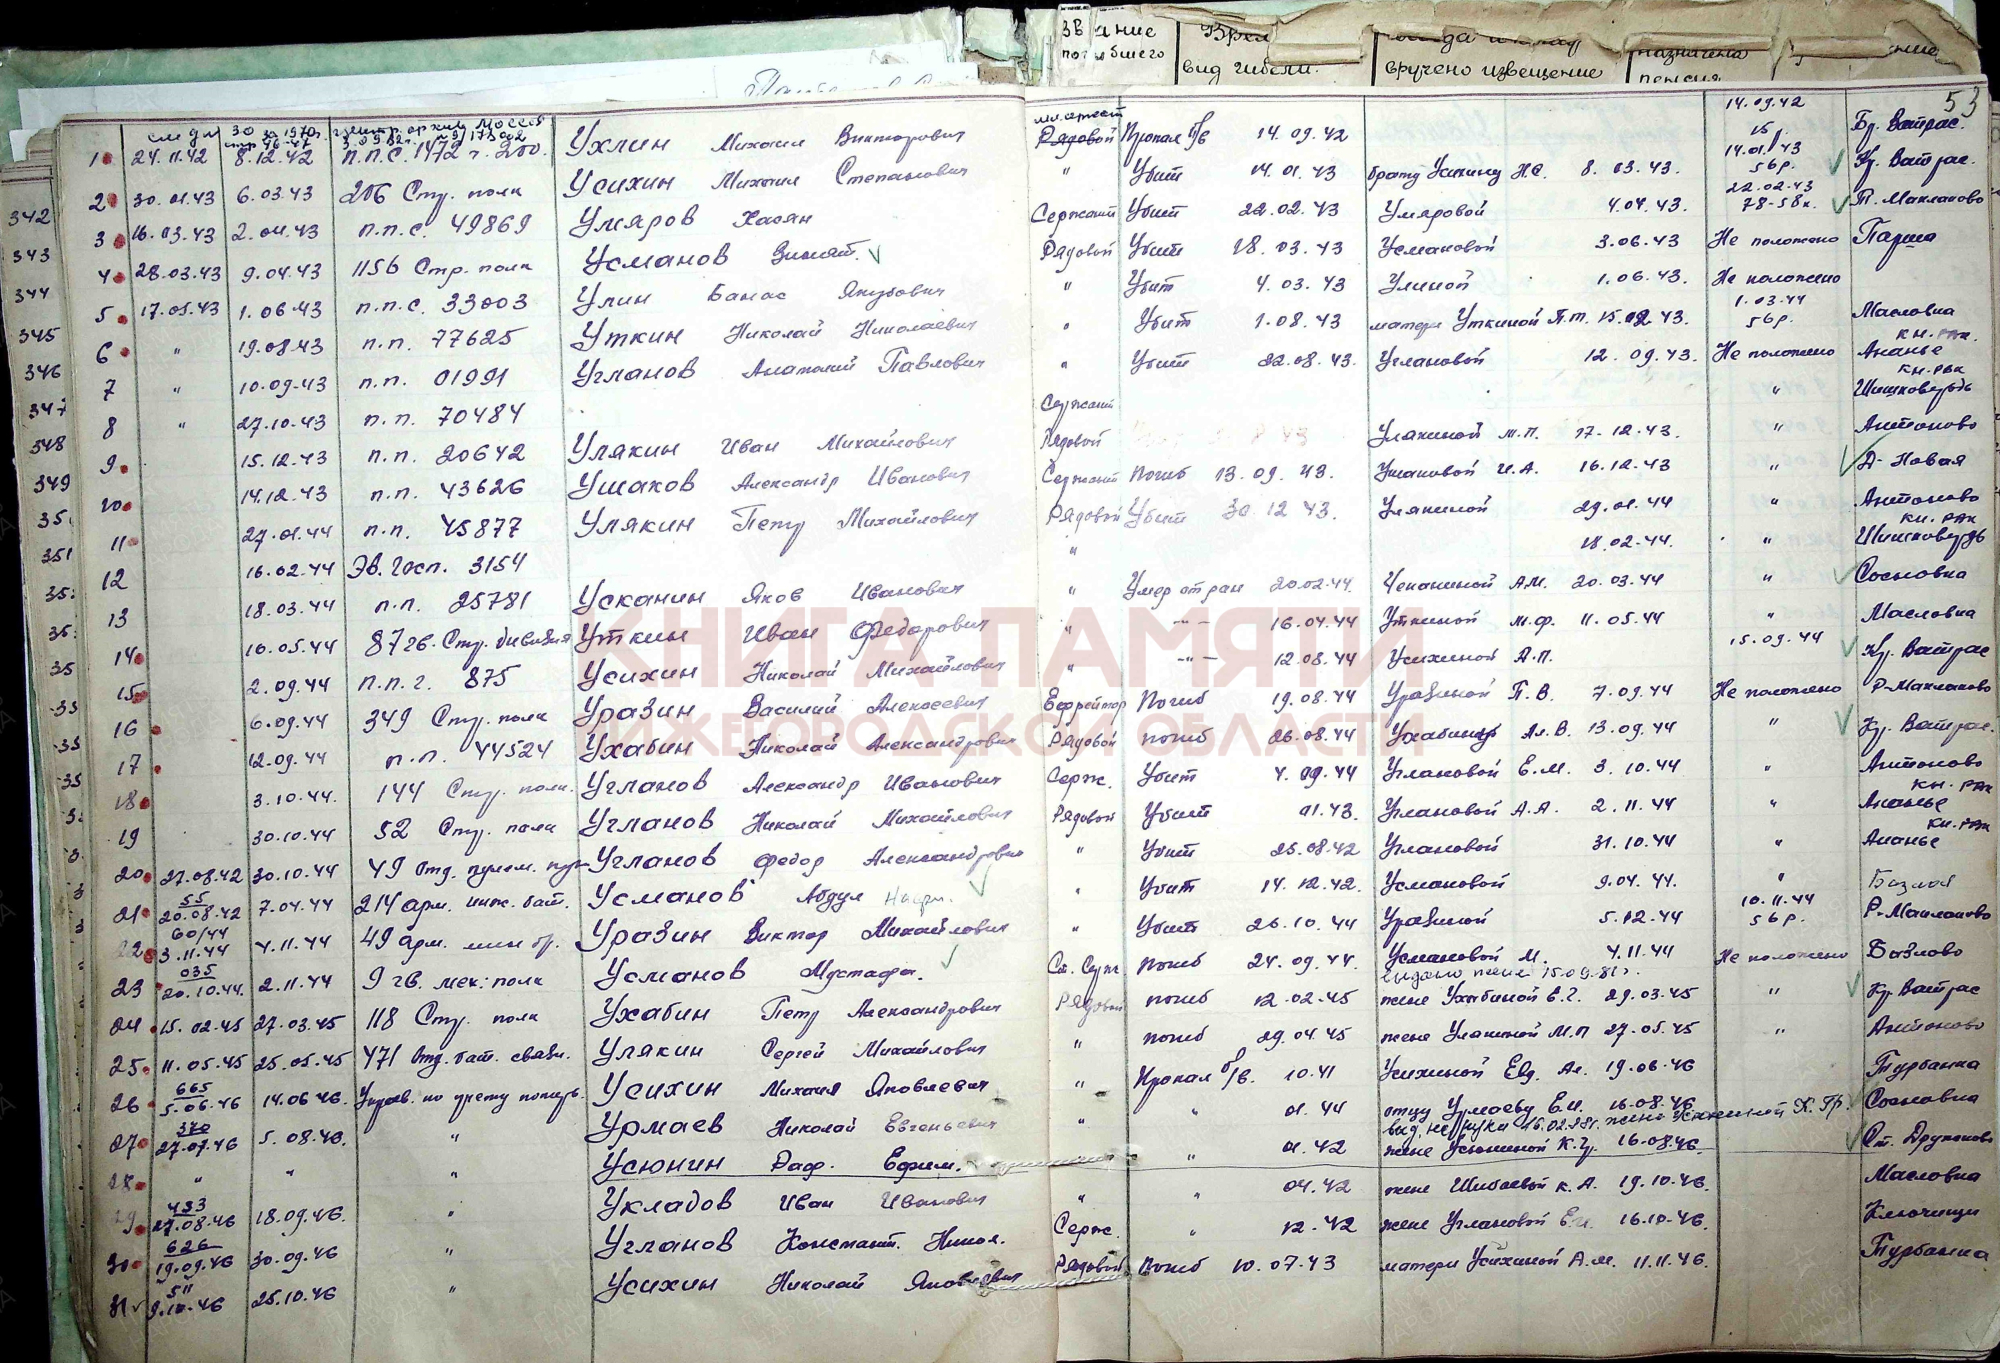 ЗВание Время
погибшего вид гибели. вручено извещение назначена пенсия
53
1 24.11.42 8.12.42 п.п.с. 1472 г. 200. Ухлин Михаил Викторович мл. сержант Рядовой Пропал б/в 14.09.42 14.09.42 Бр. Ватрас.
2 30.01.43 6.03.43 206 Стр. полк Усихин Михаил Степанович " Убит 14.01.43 брату Усихину Н.С. 8.03.43. 14.01.43 56 р. Кр. Ватрас.
342 3 16.03.43 2.04.43 п.п.с. 49869 Умяров Хасян Сержант Убит 22.02.43 Умяровой 4.04.43. 22.02.43 78-58к. Т. Маклаково
343 4 28.03.43 9.04.43 1156 Стр. полк Усманов Зинят. Рядовой Убит 18.03.43 Усмановой 3.06.43 Не положено Парша
344 5 17.05.43 1.06.43 п.п.с. 33003 Улин Банас Якубович " Убит 4.03.43 Улиной 1.06.43. Не положено
345 6 " 19.08.43 п.п. 77625 Уткин Николай Николаевич " Убит 1.08.43 матери Уткиной П.т. 15.09.43. 1.03.44 56р. Масловка
346 7 " 10.09.43 п.п. 01991 Угланов Анатолий Павлович " Убит 22.08.43. Углановой 12.09.43. Не положено кн. РВК Ананье
347 8 " 27.10.43 п.п. 70484 Сержант " кн. РВК Шишковердь
348 9 15.12.43 п.п. 20642 Улякин Иван Михайлович Рядовой Улякиной М.П. 17.12.43. " Антоново
349 10 14.12.43 п.п. 43626 Ушаков Александр Иванович Сержант Погиб 13.09.43. Ушаковой И.А. 16.12.43 " А-Новая
35 11 27.01.44 п.п. 45877 Улякин Петр Михайлович Рядовой Убит 30.12 43. Улякиной 29.01.44 " Антоново
351 12 16.02.44 Эв. Госп. 3154 " 18.02.44. " кн. РВК Шишковердь
35 13 18.03.44 п.п. 25781 Усканин Яков Иванович " Умер от ран 20.02.44. Чеканиной А.М. 20.03.44 " Сосновка
35 14 16.05.44 87 гв. Стр. дивизия Уткин Иван Федорович " -"- 16.04.44 Уткиной М.Ф. 11.05.44 " Масловка
35 15 2.09.44 п.п.г. 875 Усихин Николай Михайлович " -"- 12.08.44 Усихиной А.П. 15.09.44 Кр. Ватрас
35 16 6.09.44 349 Стр. полк Уразин Василий Алексеевич Ефрейтор Погиб 19.08.44 Уразиной П.В. 7.09.44 Не положено Р-Маклаково
35 17 12.09.44 п.п. 44524 Ухабин Николай Александрович Рядовой погиб 26.08.44 Ухабиной Ал.В. 13.09.44 " Кр. Ватрас.
35 18 3.10.44. 144 Стр. полк. Угланов Александр Иванович Серж. Убит 4.09.44 Углановой Е.М. 3.10.44 " Антоново
19 30.10.44 52 Стр. полк Угланов Николай Михайлович Рядовой Убит 01.43. Углановой А.А. 2.11.44 " кн. РВК Ананье
20 27.08.42 30.10.44 49 Отд. пулем. Угланов Федор Александрович " Убит 25.08.42 Углановой 31.10.44 " кн. РВК Ананье
21 55 20.08.42 7.04.44 214 арм. инж. бат. Усманов Абдул " Убит 14.12.42. Усмановой 9.04.44. " Базлов
22 60/44 3.11.44 4.11.44 49 арм. мин бр. Уразин Виктор Михайлович " Убит 26.10.44 Уразиной 5.12.44 10.11.44 56р. Р-Маклаково
23 035 20.10.44. 2.11.44 9 гв. мех. полк Усманов Мустафа. Ст. Серж. погиб 24.09.44. Усмановой М. 4.11.44 Не положено Базлово
выдано жене 15.09.81г.
24 15.02.45 27.03.45 118 Стр. полк Ухабин Петр Александрович Рядовой погиб 12.02.45 жене Ухабиной Е.Г. 29.03.45 " Кр. Ватрас
25 11.05.45 25.05.45 471 Отд. бат. связи. Улякин Сергей Михайлович " погиб 29.04.45 жене Улякиной М.П 27.05.45 " Антоново
26 665 5.06.46 14.06 46. Управ. по учету потерь. Усихин Михаил Яковлевич " Пропал б/в. 10.41 Усихиной Евд. Ал. 19.06.46 Турбанка
27 340 27.07.46 5.08.46. " Урмаев Николай Евгеньевич " " 01.44 отцу Урмаеву Е.И. 16.08.46 Сосновка
28 " " " Усюнин Раф. Ефим. " 01.42 жене Усюниной К.Гр. 16.08.46. Ст. Дружково
29 433 27.08.46 18.09.46. " Укладов Иван Иванович " " 04.42 жене Шибаевой К.А. 19.10.46. Масловка
30 626 19.09.46 30.09.46 " Угланов Констант. Никол. Серж. " 12.42 жене Углановой Е.И. 16.10.46. Ключищи
31 511 9.10.46 25.10.46 " Усихин Николай Яковлевич Рядовой Погиб 10.07.43 матери Усихиной А.М. 11.11.46. Турбанка
КНИГА ПАМЯТИ
НИЖЕГОРОДСКОЙ ОБЛАСТИ